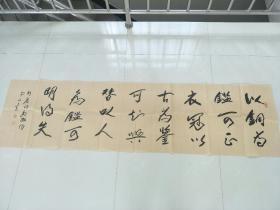 以銅为
鑑可正
衣冠以
古為鑒
可知興
替以人
為鑑可
明得失